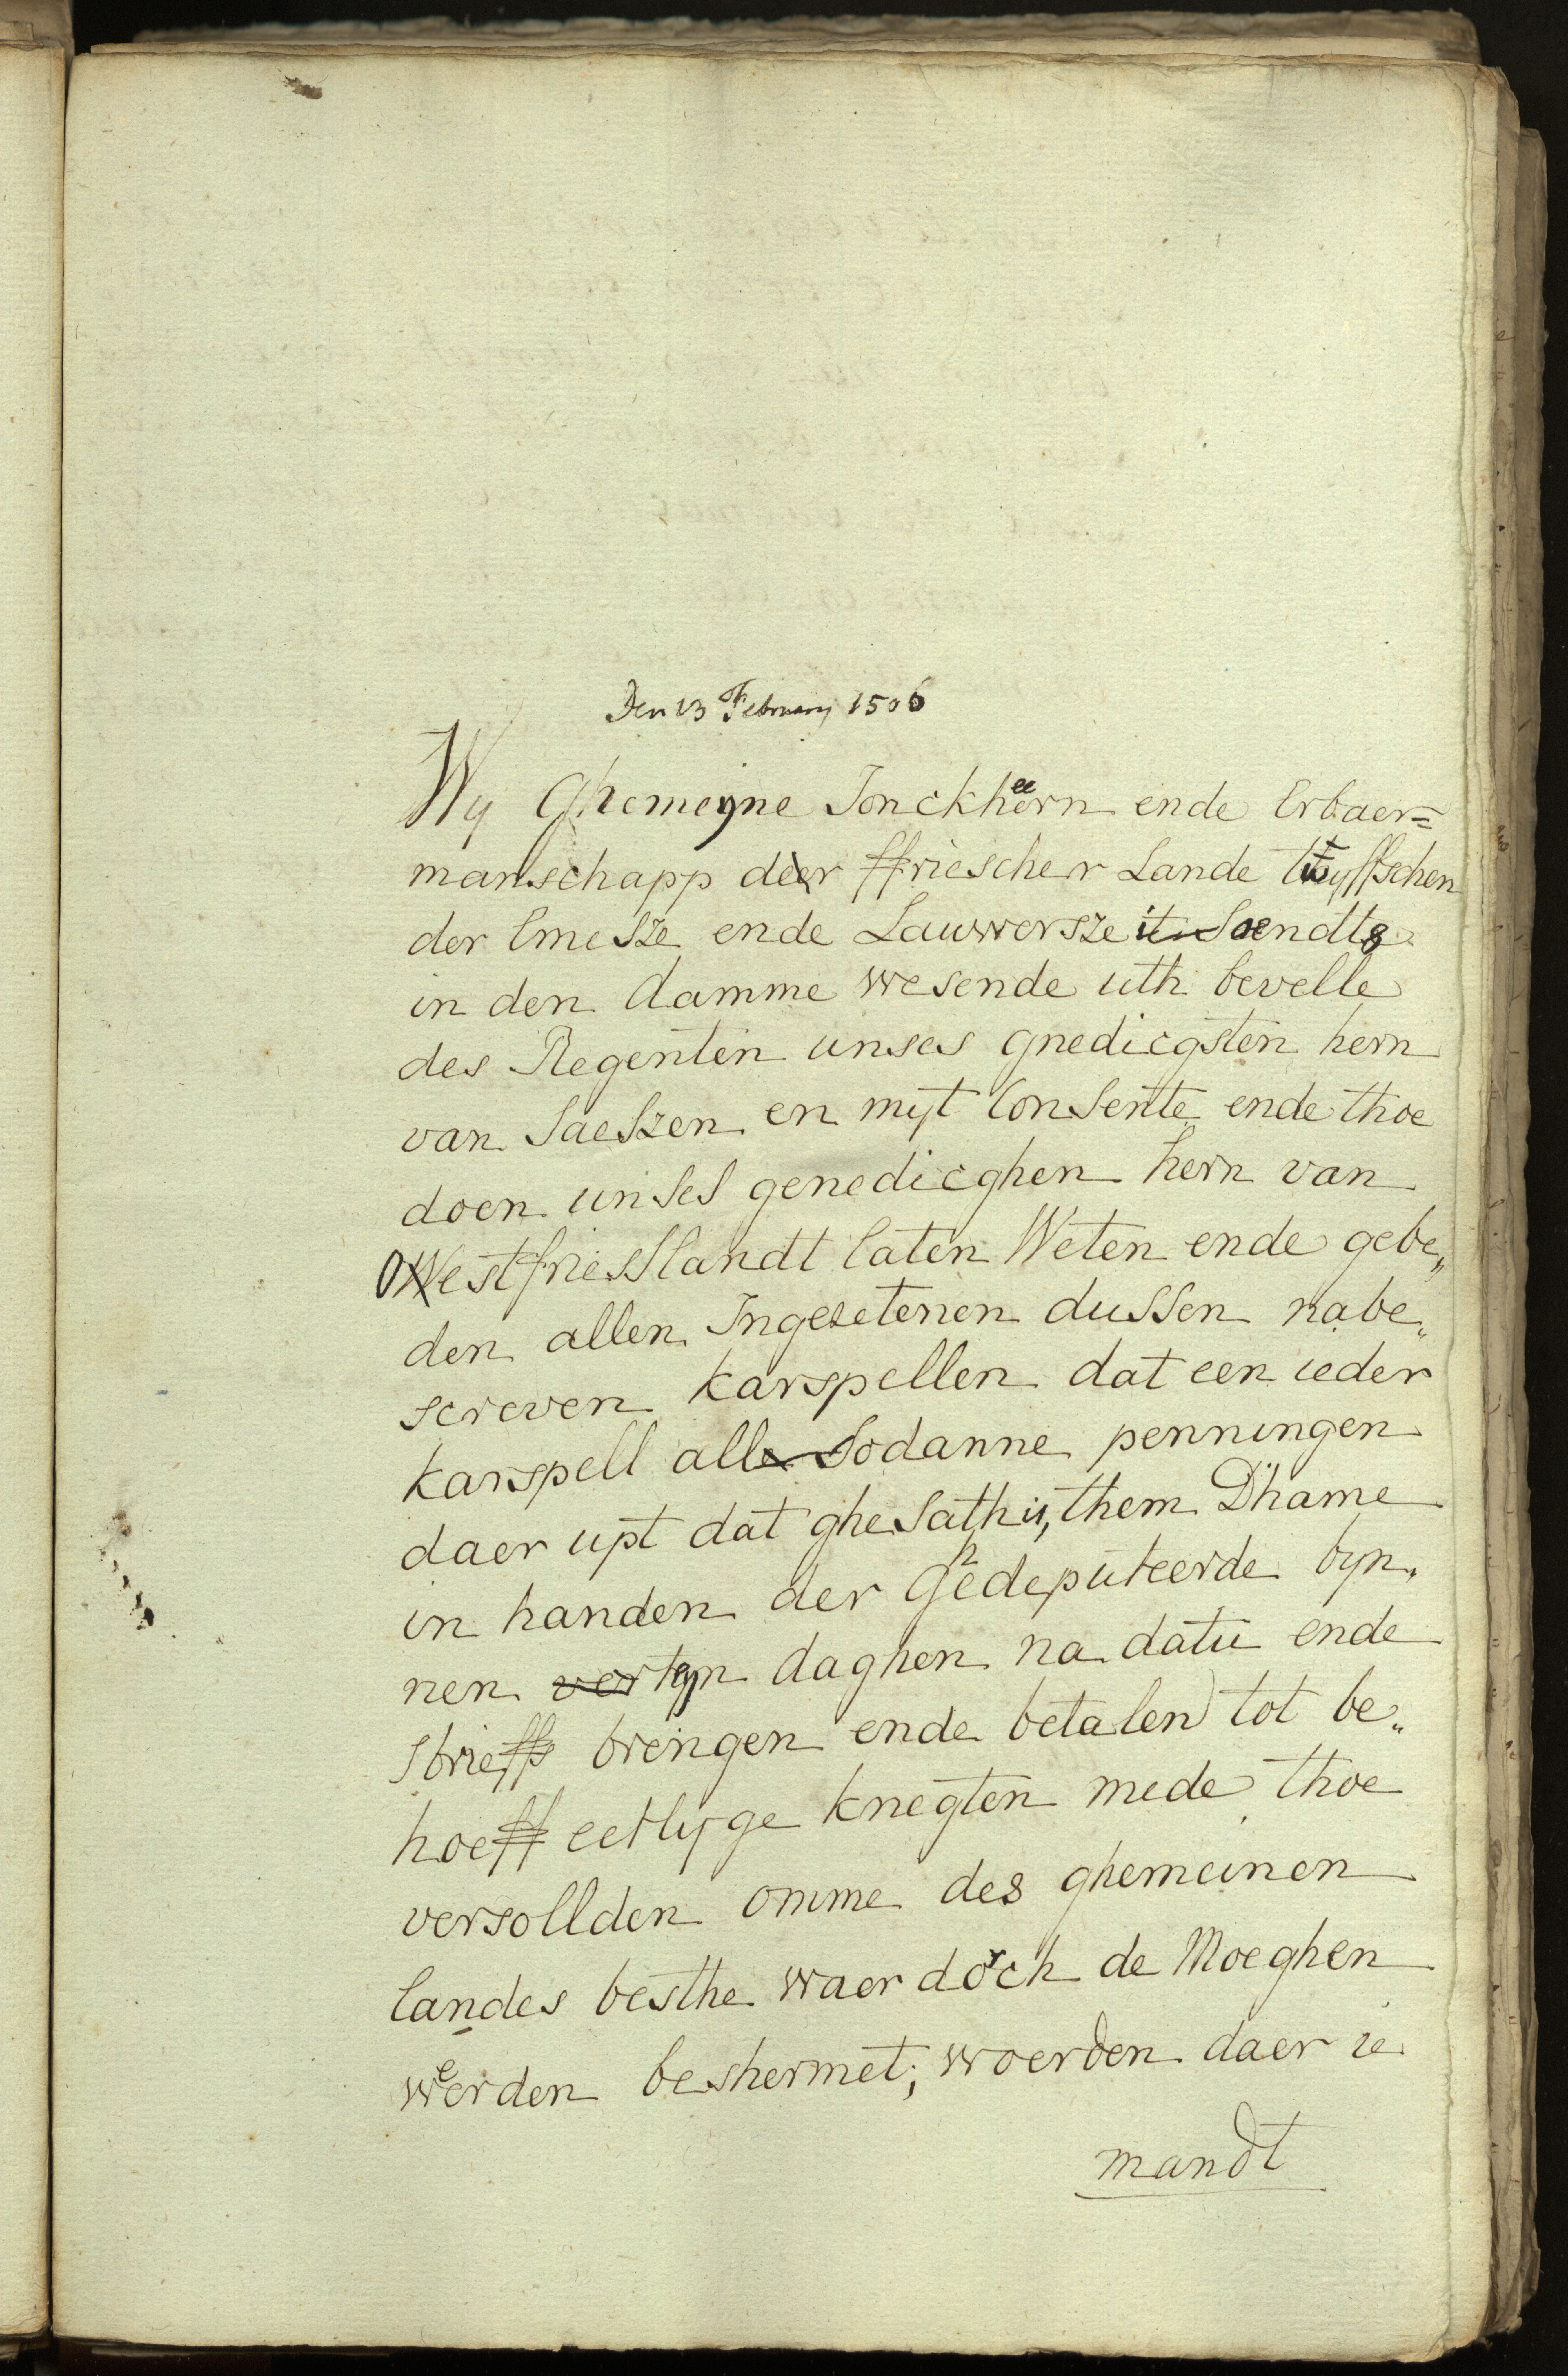 Den 13 February 1506
Wy Ghemeyne Jonckheern ende Erbaer=
manschapp der ffriescher Lande twyffschen
der Emesze ende Lauwersze itendts
in den damme wesende uth bevelle
des Regenten unses gnedicgsten hern
van Saeszen en myt Consente ende thoe
doen unses genedicghen hern van
Oestfriesslandt laten Weten ende gebe„
den allen Ingesetenen dussen nabe„
screven karspellen dat een ieder
karspell all sodanne penningen
daer upt dat ghesath is, them Dhame
in handen der Ghedeputeerde byn„
nen tyn daghen na datu ende
sbrieffs brengen ende betalen tot be„
hoeff eetlyge knegten mede thoe
versollden omme des ghemeinen
landes besthe waer dorch de Moeghen
werden beshermet; woerden daer ie
mandt